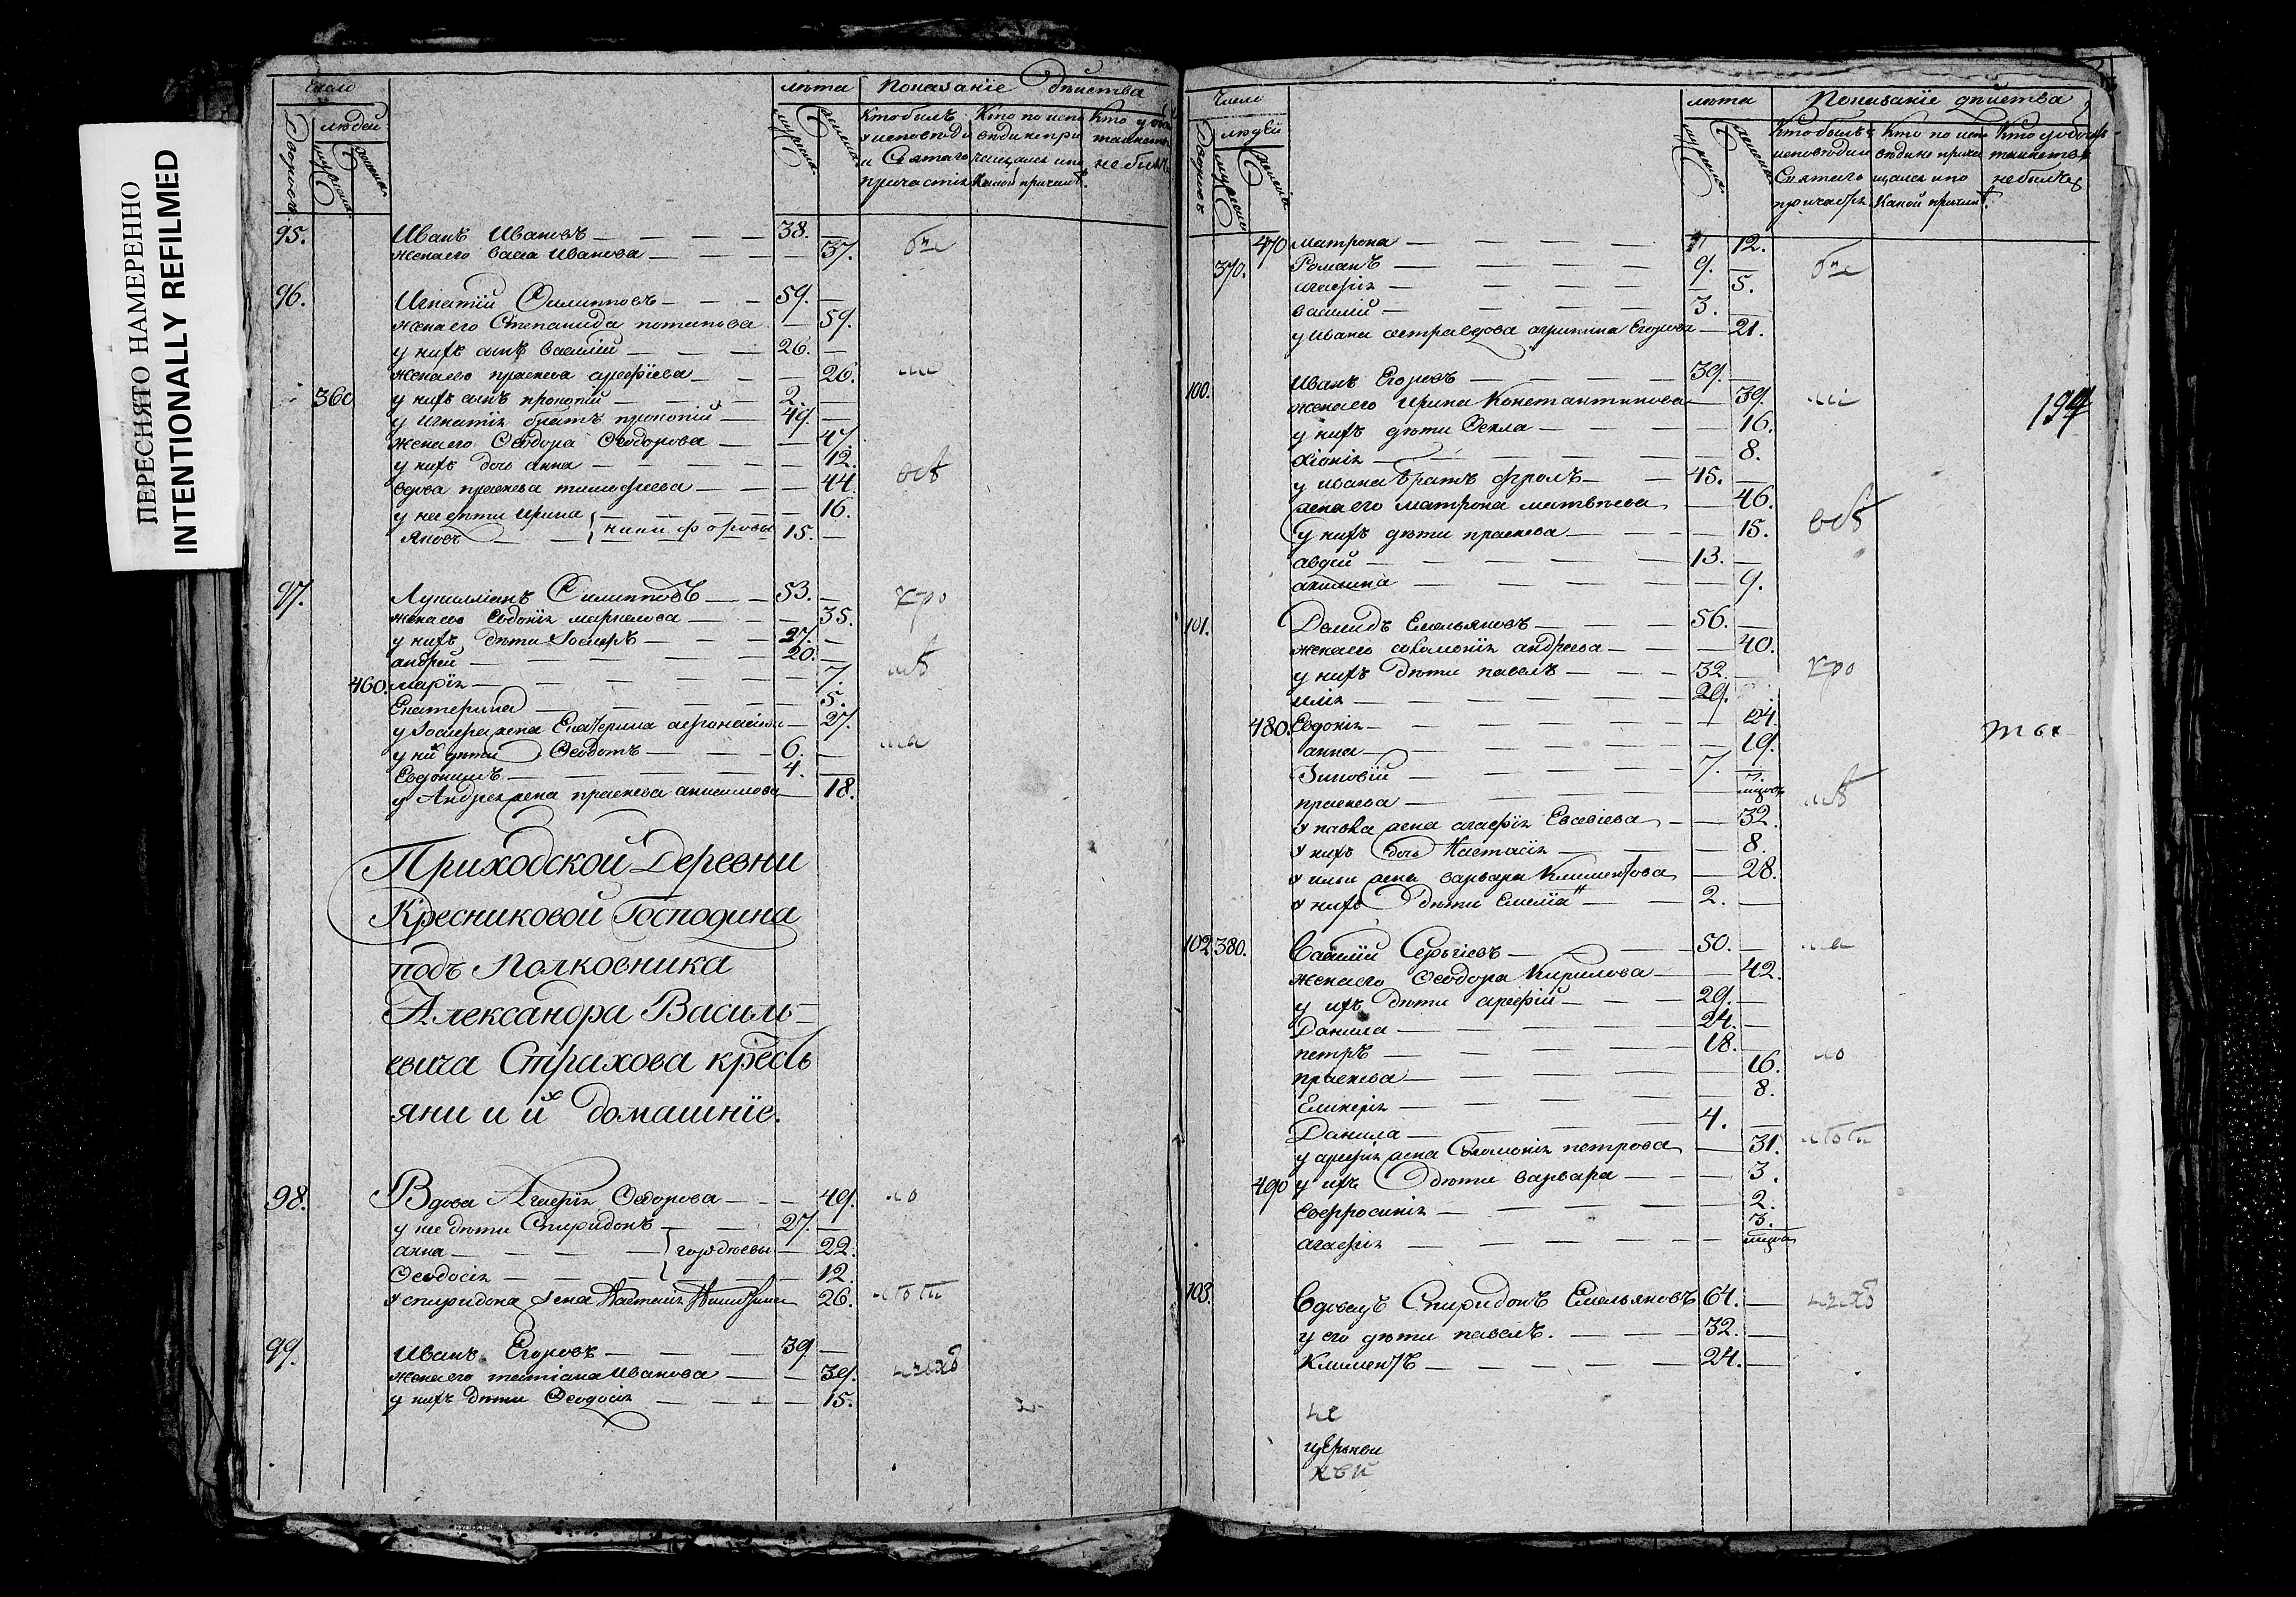 ПЕРЕСНЯТО НАМЕРЕННО
INTENTIONALLY REFILMED
число лѣта Показаніе дѣиства
Дворовъ людей мужеска женска мужеска женска
Кто былъ у исповѣди и Святаго причастія
Кто по исповѣди не причащался и по какой причинѣ
не былъ
95. Иванъ Ивановъ 38.
жена его Васса Иванова 37.
96. Игнатій Филипповъ 59.
жена его Степанида потапова 59.
у нихъ сынъ василій 26.
жена его праскева арефіева 26.
360 у нихъ сынъ прокопій 2.
у Игнатія братъ прокопій 49.
жена его Ѳеодора Ѳеодорова 47.
у нихъ дочь анна 12.
вдова праскева тимофеева 44.
у нея дѣти Ирина 16.
Яковъ никифоровы 15.
97. Лукилліанъ Филипповъ 53.
жена его Евдокія маркелова 35.
у нихъ дѣти 27.
андрей 20.
460. марія 7.
Екатерина 5.
жена Екатерина афонасіева 27.
у них дѣти Ѳеодотъ 6.
Евдокимъ 4.
у Андрея жена праскева анисимова 18.
Приходской Деревни
Кресниковой Господина
подъ Полковника
Александра Василь-
евича Страхова кресть
яни и ихъ домашніе.
98. Вдова Агафія Ѳедорова 49.
у нее дѣти Спиридонъ 27.
анна гордѣевы 22.
Ѳеодосія 12.
у спиридона жена Настасія 26.
99. Иванъ Егоровъ 39
жена его татіана Иванова 39.
у нихъ дѣти Ѳеодосія 15.
Число лѣта Показаніе дѣйства
Дворовъ людей мужеска женска мужеска женска
Кто былъ у исповѣди и Святаго причастія
Кто по исповѣди не причащался и по какой причинѣ
не былъ
470 матрона 12.
370. Романъ 9.
агафія 5.
василій 3.
у Ивана акрипина Егорова 21.
100. Иванъ Егоровъ 39.
жена его Ирина Константинова 39.
194
у нихъ дѣти Ѳекла 16.
хіонія 8.
у ивана братъ фролъ 45.
жена его матрона матвѣева 46.
у нихъ дѣти праскева 15.
авдей 13.
акилина 9.
101. Демидъ Емельяновъ 56.
жена его соломонія андреева 40.
у нихъ дѣти павелъ 32.
илія 29.
480. Евдокія 24.
анна 19.
Зиновій 7.
праскева 7.
у павла жена агафія Евсевіева 32.
у нихъ дочь Настасія 8.
у ильи жена варвара Климентова 28.
у нихъ дѣти 2.
102 380. Василій Сергіевъ 50.
жена его Ѳеодора Кирилова 42.
у ихъ дѣти арефій 29.
Данила 24.
петръ 18.
праскева 16.
Гликерія 8.
Данила 4.
у арефія жена Соломонія петрова 31.
490 у ихъ дѣти варвара 3.
Евфросинія 2.
агафія 3.
103. Вдовецъ Спиридонъ Емельяновъ 64.
у его дѣти павелъ. 32.
Климентъ 24.